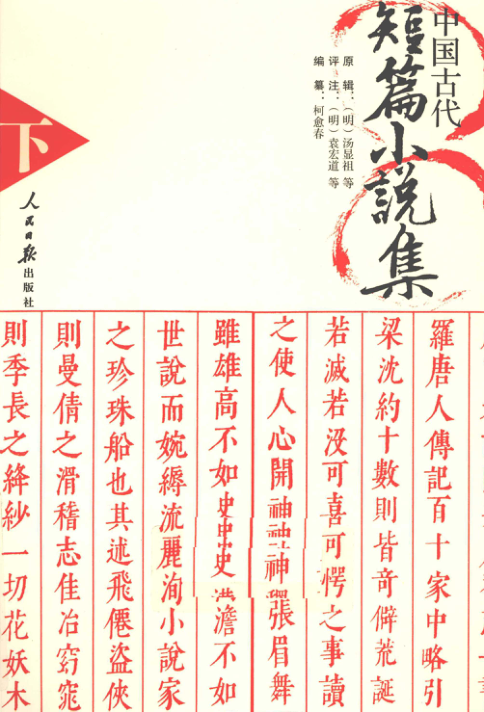 中国古代
短篇小說集
原辑：（明）汤显祖 等
评注：（明）袁宏道 等
编纂：柯愈春
下
人民日报出版社
羅唐人傳記百十家中略引
梁沈約十數則皆奇僻荒誕
若滅若沒可喜可愕之事讀
之使人心開神神神張眉舞
雖雄高不如史史史澹不如
世說而婉縟流麗洵小說家
之珍珠船也其述飛僊盜俠
則曼倩之滑稽志佳冶窈窕
則季長之絳紗一切花妖木